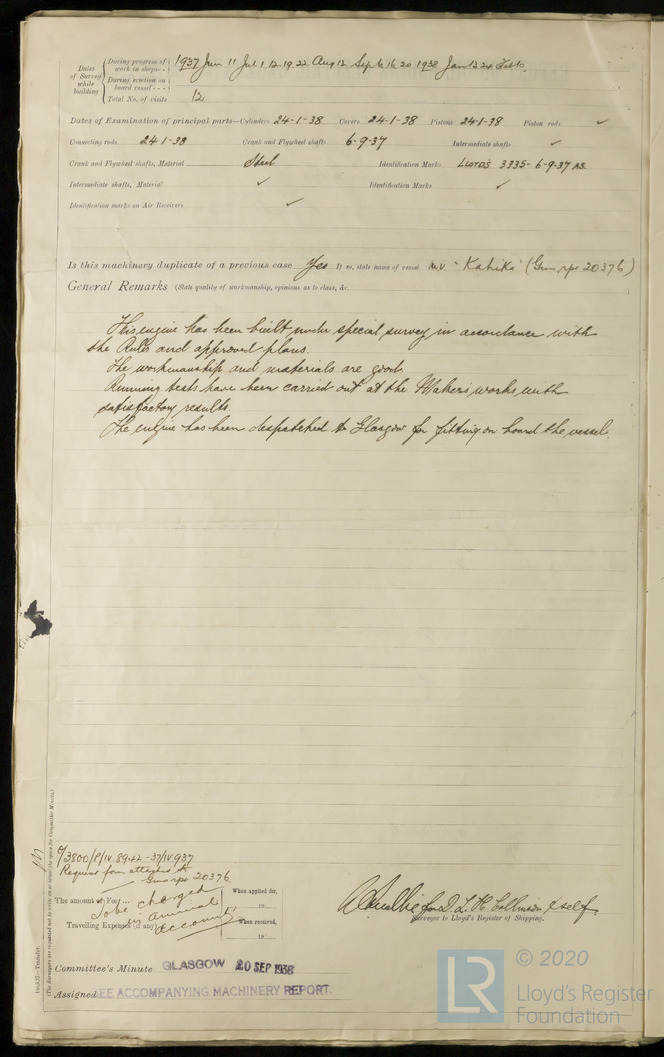 Dates of Survey while building
During progress of work in shops - - 1937 Jun 11 Jul 1, 12, 19, 22 Aug 12 Sept 6, 16, 20 1938 Jan 12, 24 Feb
During erection on board vessel - - -
Total No. of visits 12
Dates of Examination of principal parts—Cylinders 24-1-38 Covers 24-1-38 Pistons 24-1-38 Piston rods ✓
Connecting rods 24-1-38 Crank and Flywheel shafts 6-9-37 Intermediate shafts ✓
Crank and Flywheel shafts, Material Steel Identification Marks LLOYD'S 3335- 6-9-37 AS.
Intermediate shafts, Material ✓ Identification Marks ✓
Identification marks on Air Receivers ✓
Is this machinery duplicate of a previous case Yes If so, state name of vessel M.V. "Kahika" (Gms rpt 20376)
General Remarks (State quality of workmanship, opinions as to class, &c.
This engine has been built under special survey in accordance with
the Rules and approved plans.
The workmanship and materials are good.
Running tests have been carried out at the Makers works with
satisfactory results.
The engine has been despatched to Glasgow for fitting on board the vessel.
Request form attached to
Gms rpt 20376
The amount of Fee
To be charged in annual account
Travelling Expenses (if any)
When applied for,
19
When received,
19
for D. L. H. Collinson & self.
Surveyor to Lloyd's Register of Shipping.
Committee's Minute GLASGOW 20 SEP 1938
Assigned SEE ACCOMPANYING MACHINERY REPORT.
(The Surveyors are requested not to write on or below the space for Committee Minute.)
© 2020
LR
Lloyd's Register
Foundation